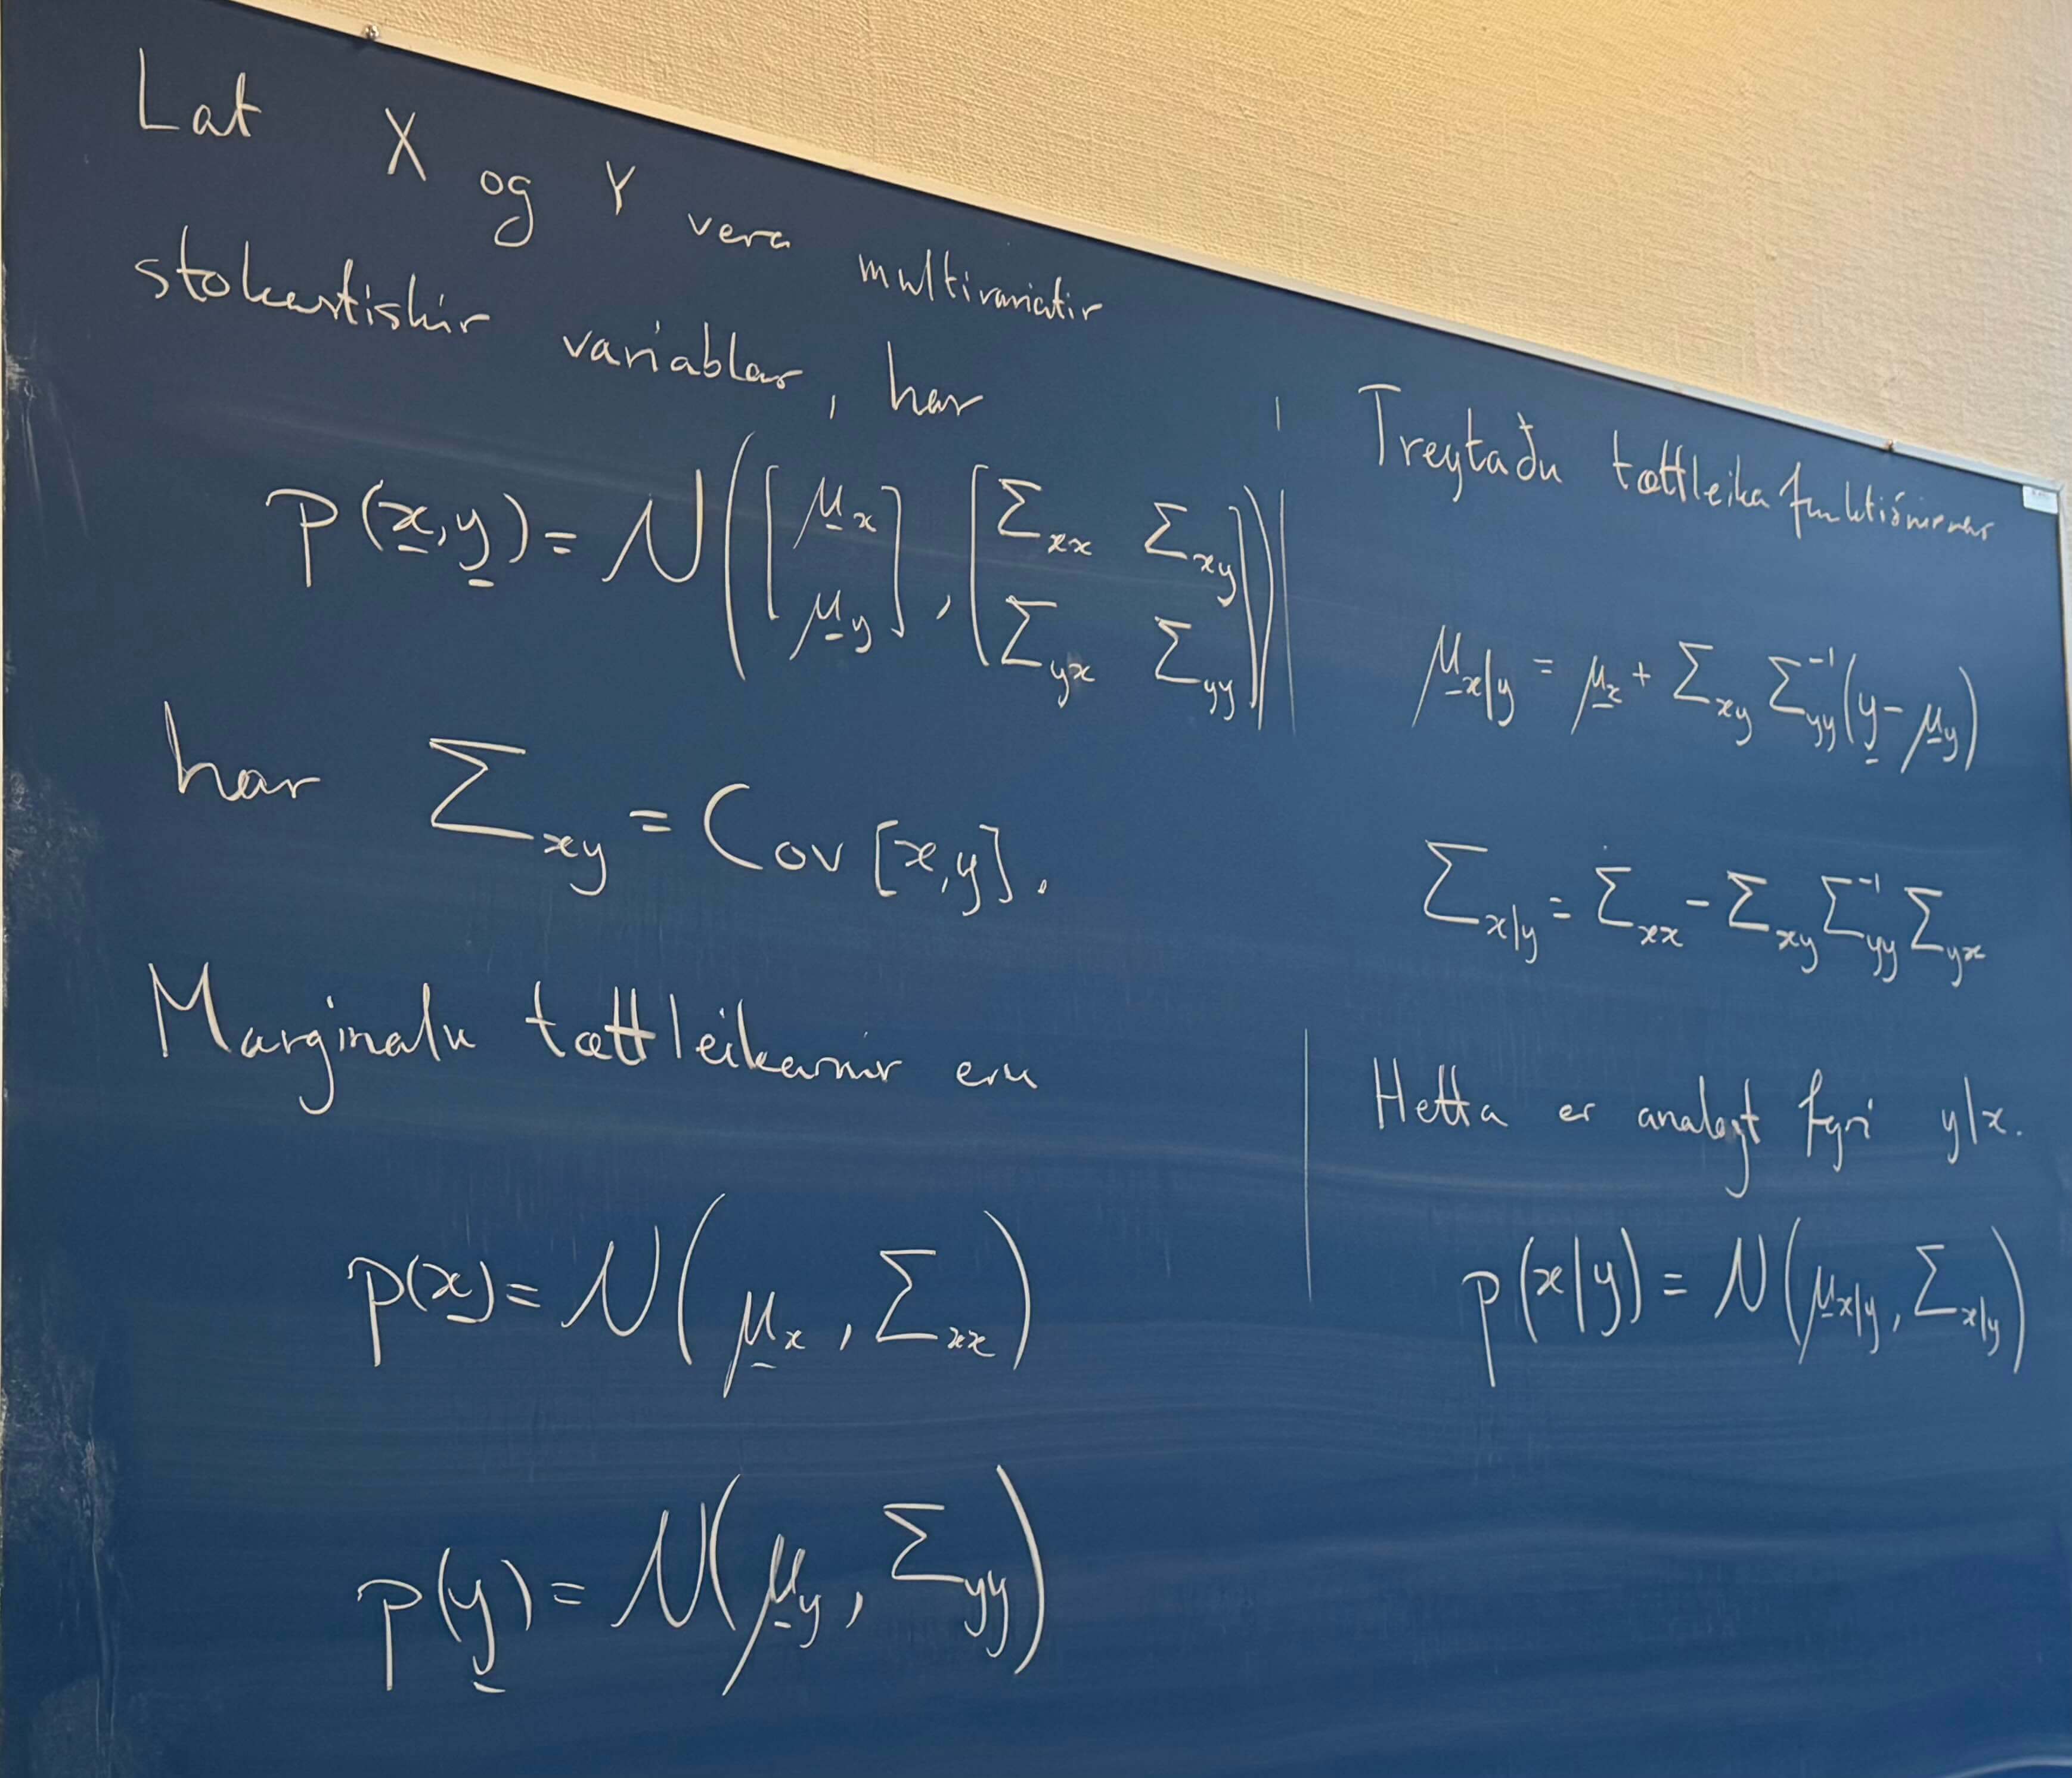 Lat X og Y vera multivariatir
stokastiskir variablar, har
p(x̲, y̲) = N([μ̲_x; μ̲_y], [Σ_xx Σ_xy; Σ_yx Σ_yy])
har Σ_xy = Cov[x,y].
Marginalu tættleikarnir eru
p(x̲) = N(μ̲_x, Σ_xx)
p(y̲) = N(μ̲_y, Σ_yy)
Treytaðu tættleikafunktiónirnar
μ̲_x|y = μ̲_x + Σ_xy Σ_yy^-1 (y̲ - μ̲_y)
Σ_x|y = Σ_xx - Σ_xy Σ_yy^-1 Σ_yx
Hetta er analogt fyri y|x.
p(x|y) = N(μ̲_x|y, Σ_x|y)